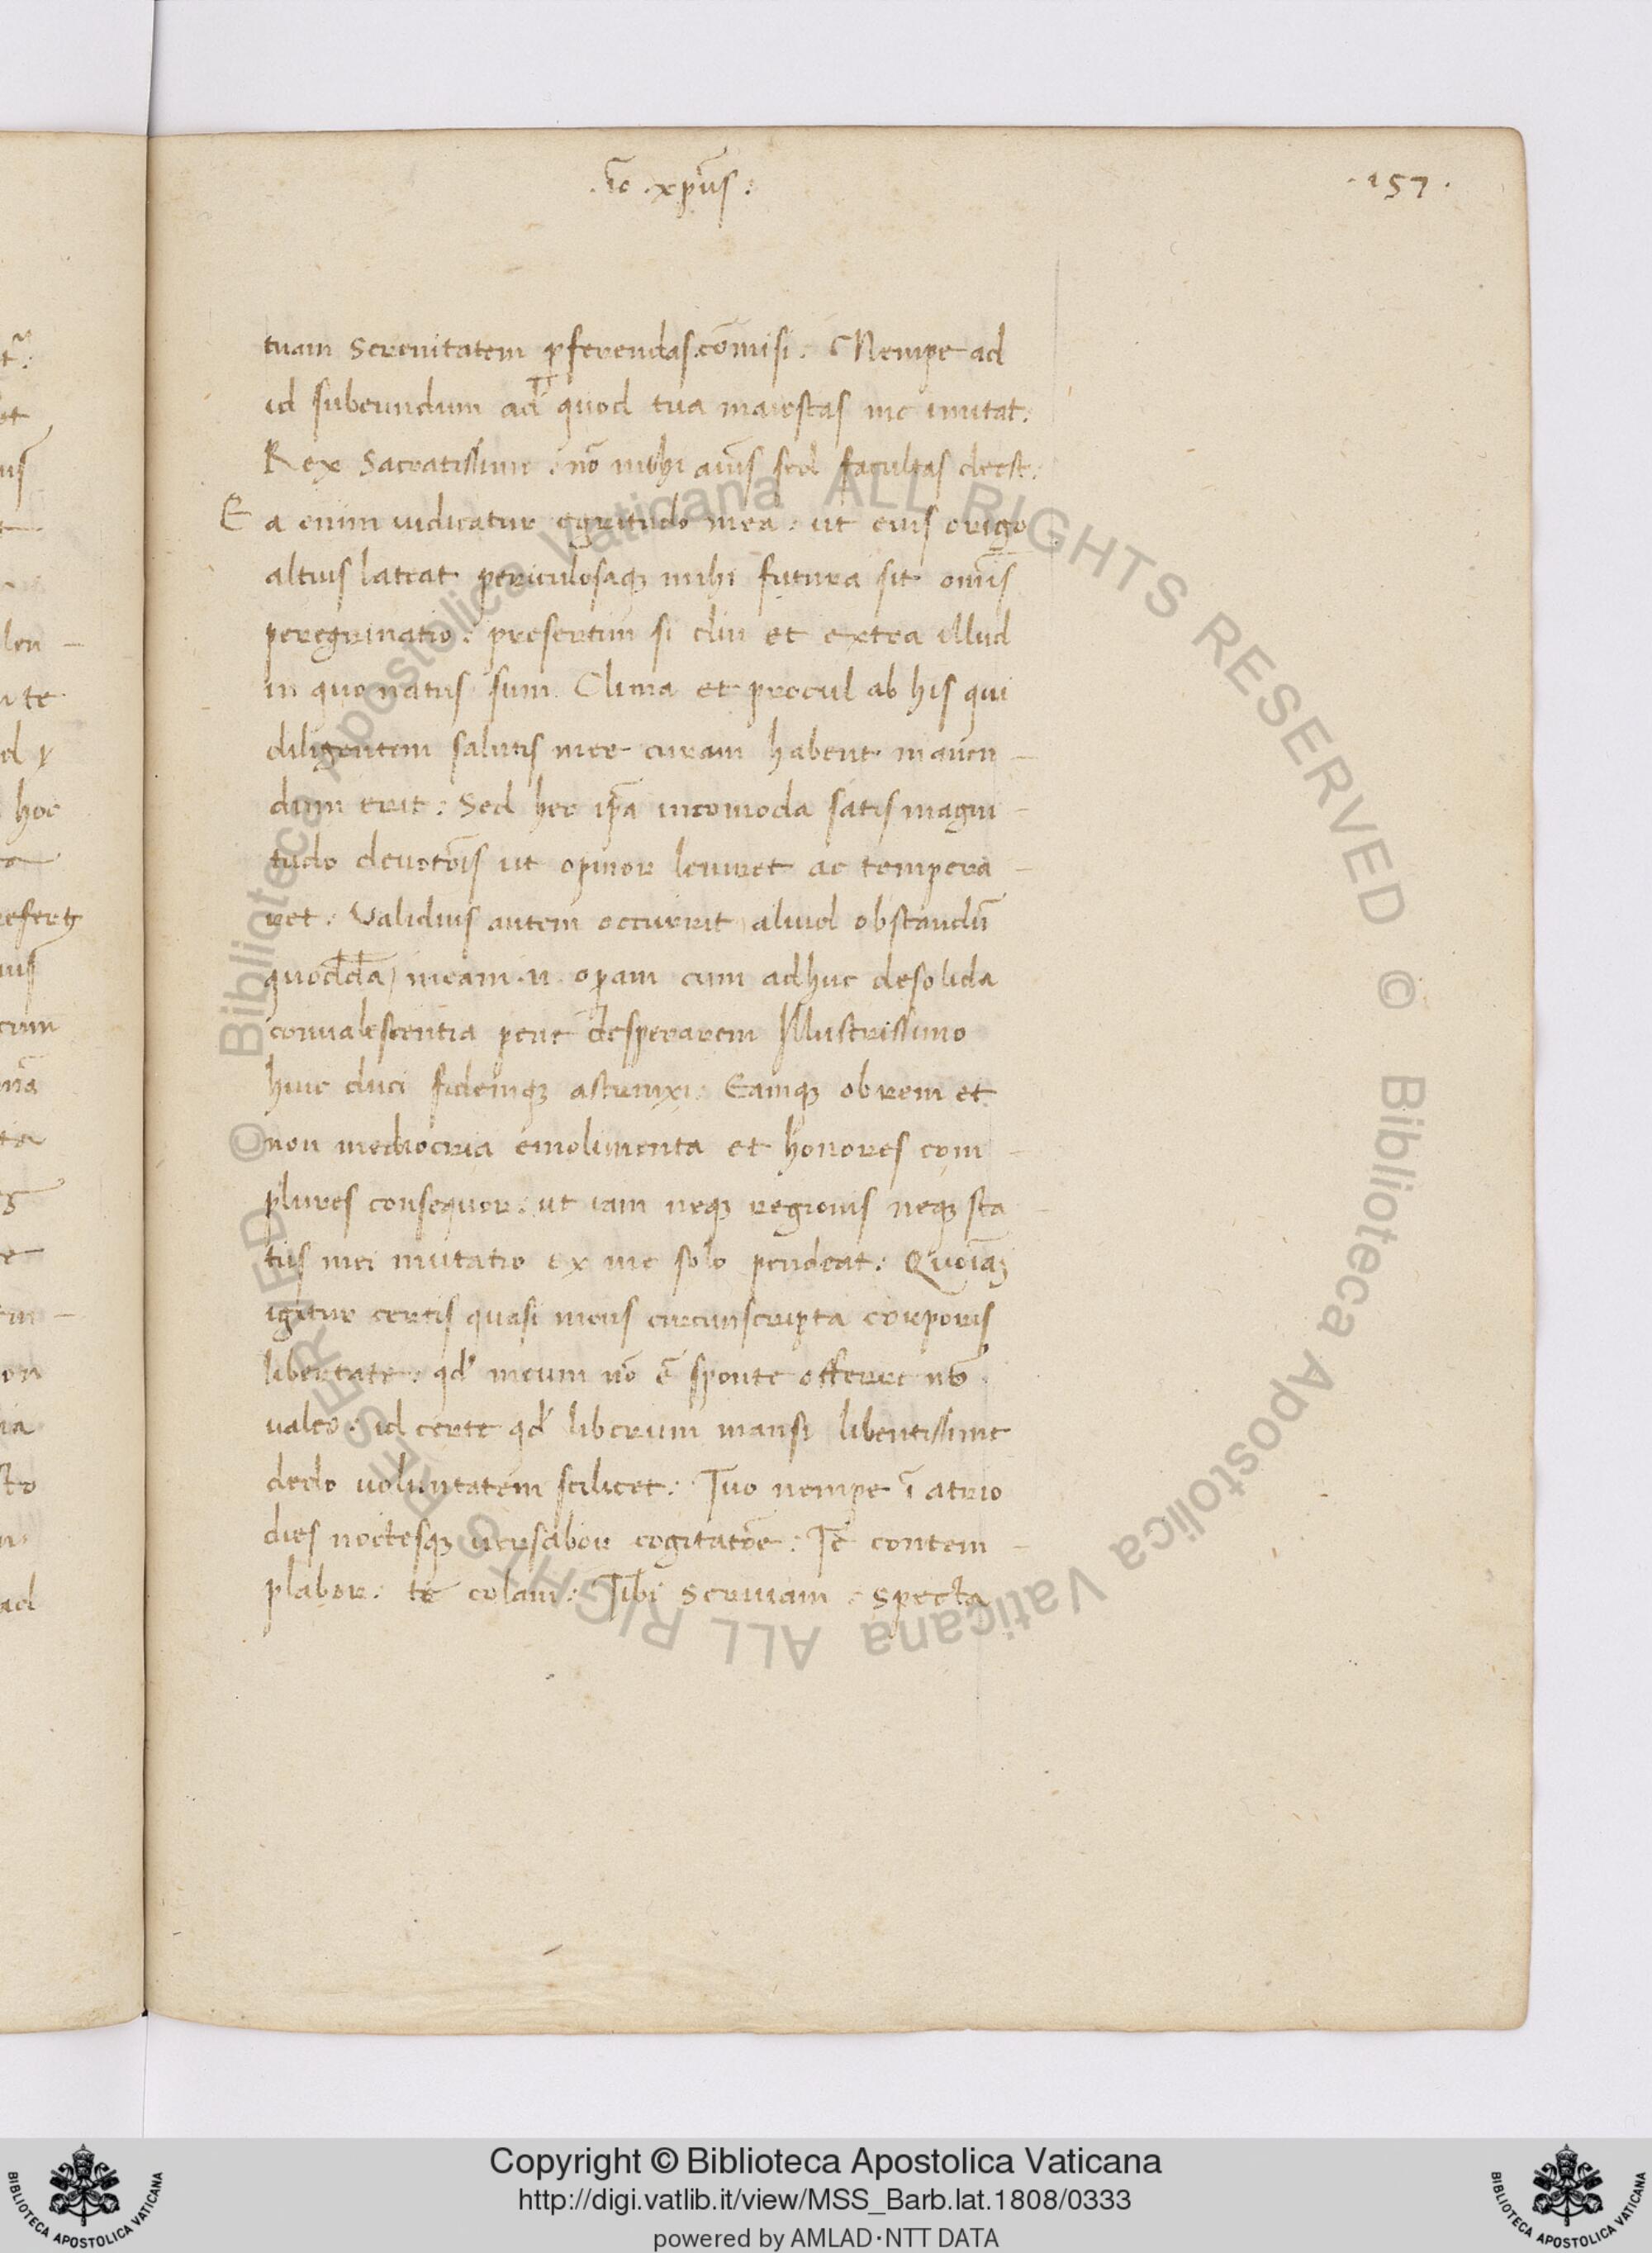 .ıo̅ .xp̅us :
.157.
tuam serenitatem ꝑferendas.co̅misi. Nempe ad
id subeundum ad quod tua maiestas me inuitat:
Rex Sacratissime . no̅ mihi ai̅us sed facultas deest:
Ea enim iudicatur egritudo mea . ut eius origo
altius lateat periculosaqꝫ mihi futura sit om̅is
peregrinatio : presertim si diu et extra illud
in quo natus sum Clima et procul ab his qui
diligentem salutis mee curam habent manen-
dum erit : Sed hec ip̅a incomoda satis magni-
tudo deuoto̅is ut opinor leniret ac tempera-
ret : Validius autem occurrit aliud obstandu̅
quodda̅ / meam .n. oꝑam cum adhuc desolida
conualescentia pene desperarem Illustrissimo
huic duci fidemqꝫ astrinxi. Eamqꝫ obrem et
non mediocria emolimenta et honores com-
plures consequor : ut iam neqꝫ regionis neqꝫ sta-
tus mei mutatio ex me solo pendeat : Quoia̅ꝫ
igitur certis quasi meus circunscripta corporis
libertate . qd̕ meum no̅ e̅ sponte offerre no̅
ualeo : id certe qd̕ liberum mansi libentissime
dedo uoluntatem scilicet : Tuo nempe i̅ atrio
dies noctesqꝫ uersabor cogitato̅e : Te contem-
plabor : te colam : Tibi seruiam : specta
Copyright © Biblioteca Apostolica Vaticana
http://digi.vatlib.it/view/MSS_Barb.lat.1808/0333
powered by AMLAD·NTT DATA